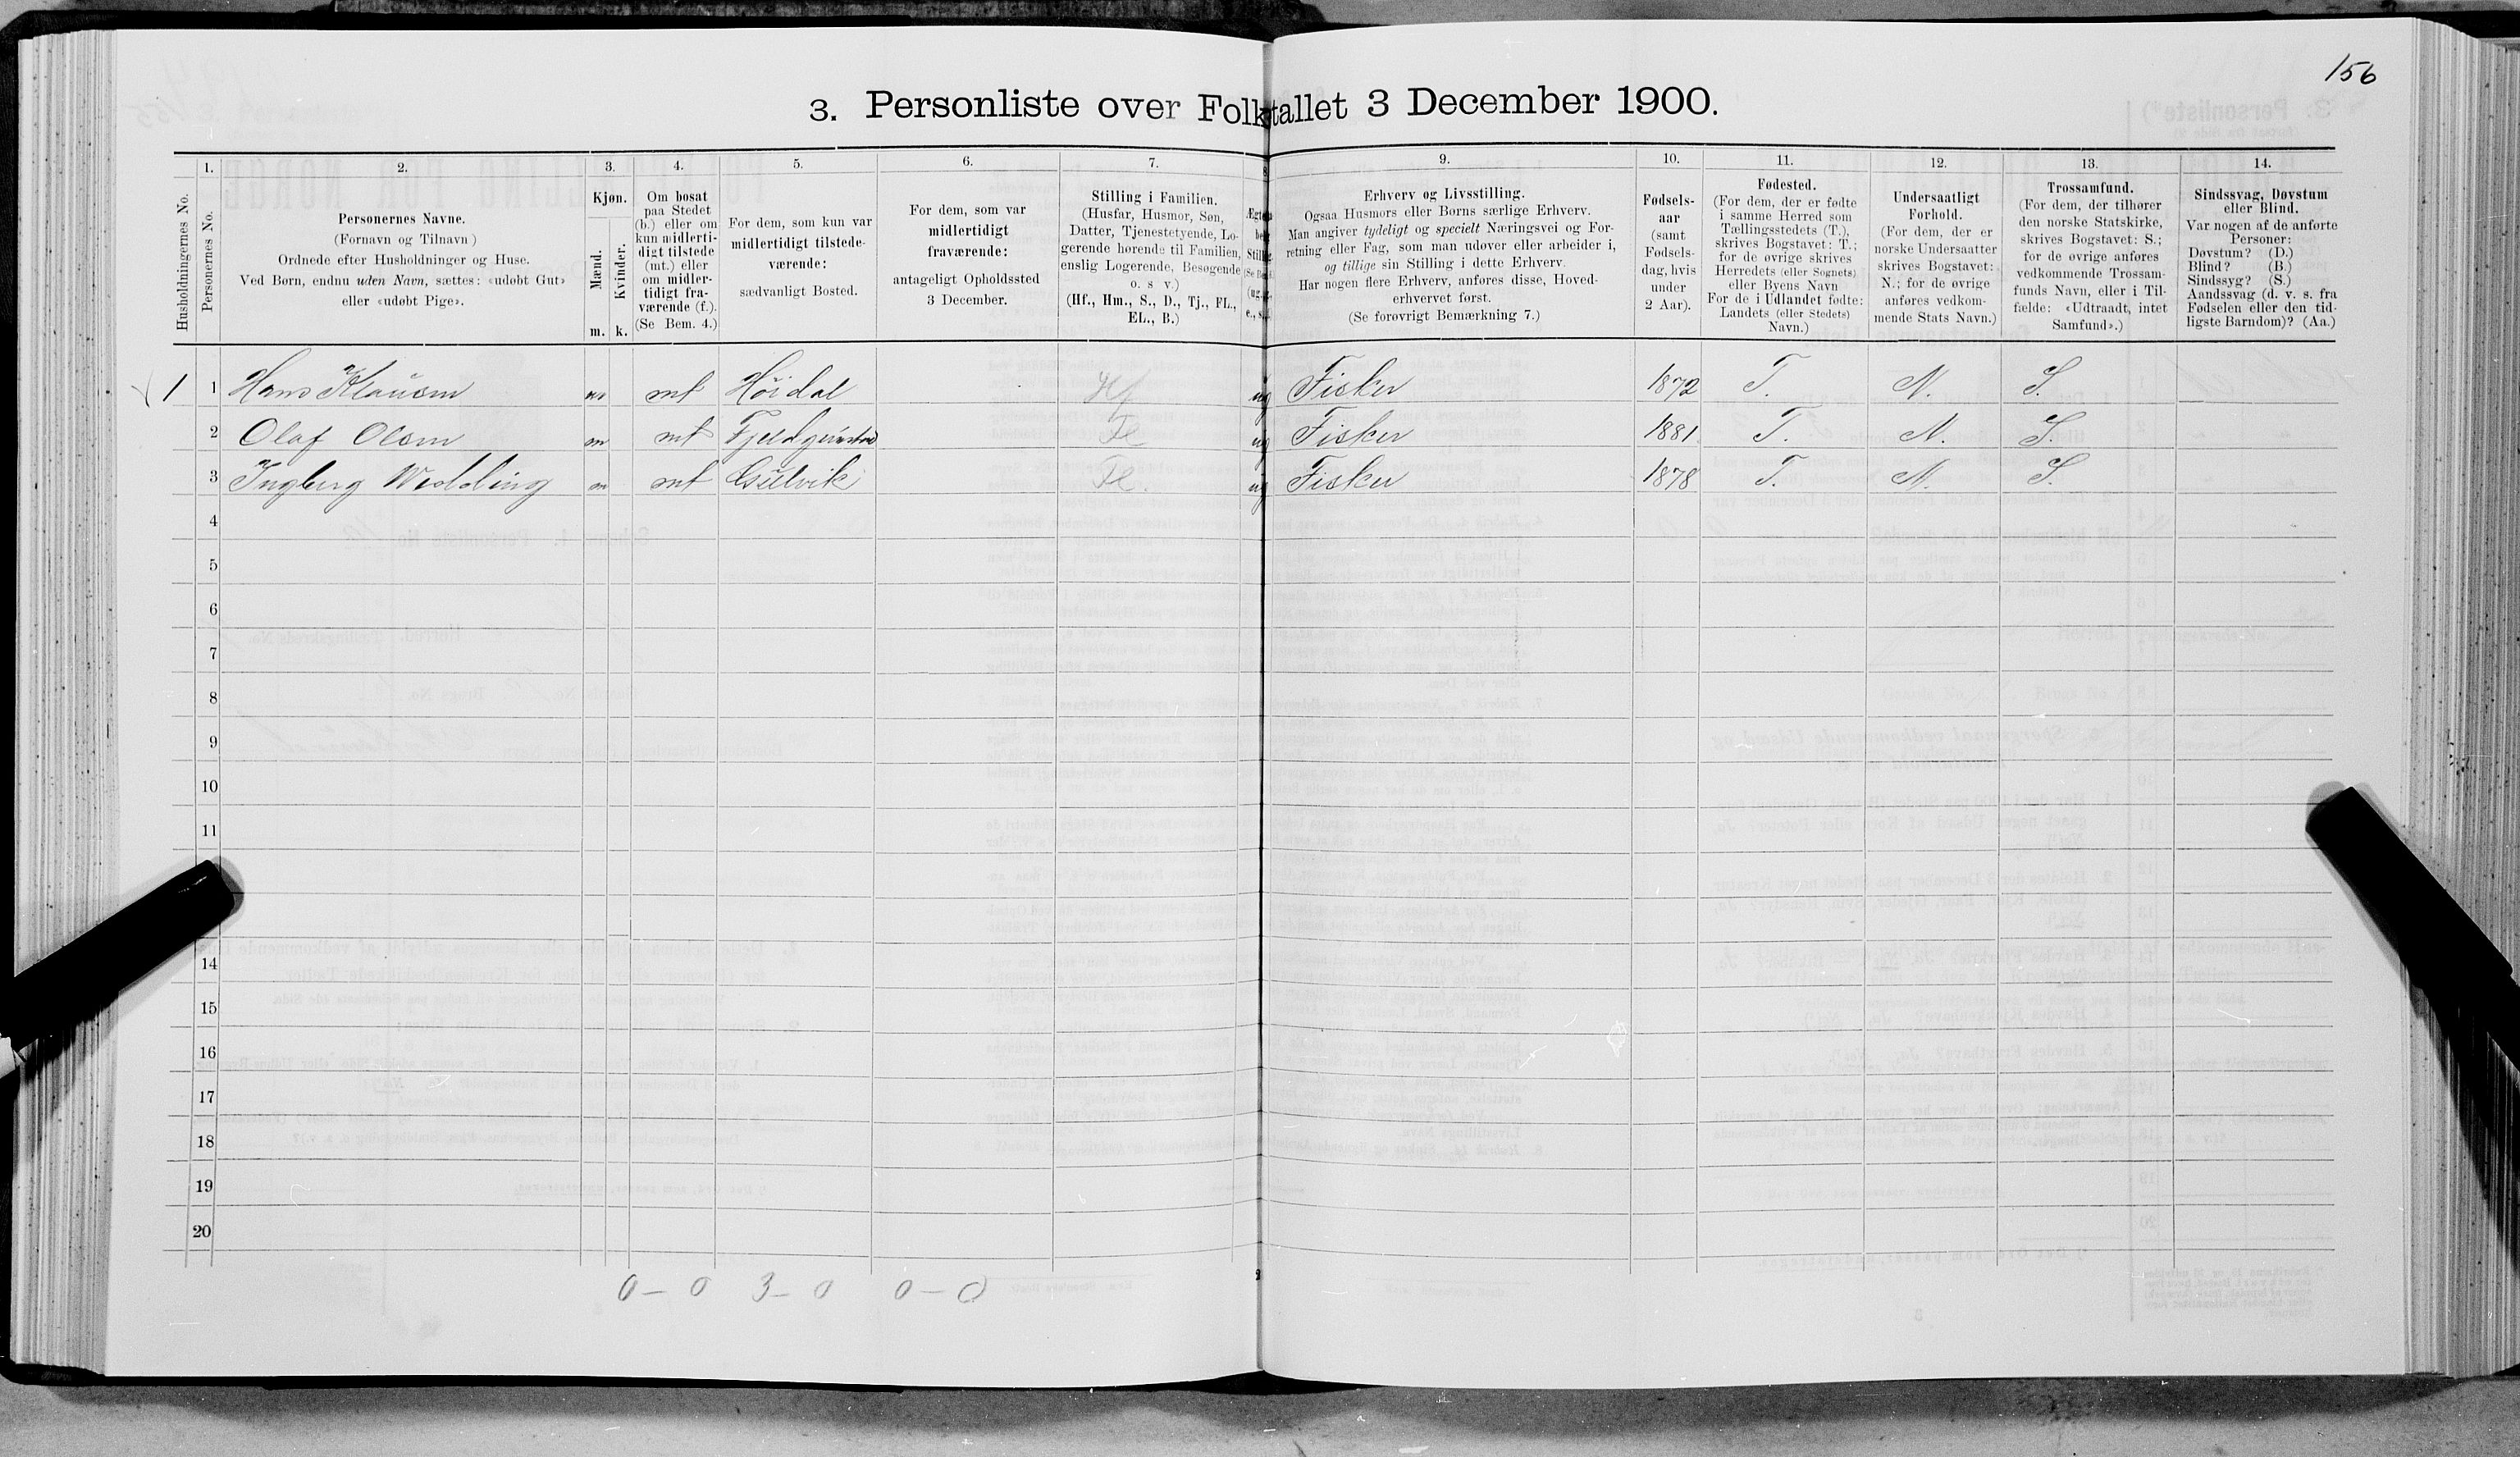 156
3. Personliste over Folketallet 3 December 1900.
Husholdningernes No.
1.
Personernes No.
2.
Personernes Navne.
(Fornavn og Tilnavn)
Ordnede efter Husholdninger og Huse.
Ved Børn, endnu uden Navn, sættes: «udøbt Gut»
eller «udøbt Pige».
3.
Kjøn.
Mænd.
Kvinder.
m. k.
4.
Om bosat
paa Stedet
(b.) eller om
kun midlerti-
digt tilstede
(mt.) eller
om midler-
tidigt fra-
værende (f.).
(Se Bem. 4.)
5.
For dem, som kun var
midlertidigt tilstede-
værende:
sædvanligt Bosted.
6.
For dem, som var
midlertidigt
fraværende:
antageligt Opholdssted
3 December.
7.
Stilling i Familien.
(Husfar, Husmor, Søn,
Datter, Tjenestetyende, Lo-
gerende hørende til Familien,
enslig Logerende, Besøgende
o. s v.)
(Hf., Hm., S., D., Tj., FL.,
EL., B.)
9.
Erhverv og Livsstilling.
Ogsaa Husmors eller Børns særlige Erhverv.
Man angiver tydeligt og specielt Næringsvei og For-
retning eller Fag, som man udøver eller arbeider i,
og tillige sin Stilling i dette Erhverv.
Har nogen flere Erhverv, anføres disse, Hoved-
erhvervet først.
(Se forøvrigt Bemærkning 7.)
10.
Fødsels-
aar
(samt
Fødsels-
dag, hvis
under
2 Aar).
11.
Fødested.
(For dem, der er fødte
i samme Herred som
Tællingsstedets (T.),
skrives Bogstavet: T.;
for de øvrige skrives
Herredets (eller Sognets)
eller Byens Navn
For de i Udlandet fødte:
Landets (eller Stedets)
Navn.)
12.
Undersaatligt
Forhold.
(For dem, der er
norske Undersaatter
skrives Bogstavet:
N.; for de øvrige
anføres vedkom-
mende Stats Navn.)
13.
Trossamfund.
(For dem, der tilhører
den norske Statskirke,
skrives Bogstavet: S.;
for de øvrige anføres
vedkommende Trossam-
funds Navn, eller i Til-
fælde: «Udtraadt, intet
Samfund».)
14.
Sindssvag, Døvstum
eller Blind.
Var nogen af de anførte
Personer:
Døvstum? (D.)
Blind? (B.)
Sindssyg? (S.)
Aandssvag (d. v. s. fra
Fødselen eller den tid-
ligste Barndom)? (Aa.)
1 1 Hans Klausen m mt Höidal Hf ug Fisker 1872 T. N. S.
2 Olaf Olsen m mt Fl ug Fisker 1881 T. N. S.
3 Ingberg Wedding m mt Gulvik Fl. ug Fisker 1878 T. N. S.
4
5
6
7
8
9
10
11
14
15
16
17
18
19
20
0 – 0 3 – 0 0 – 0